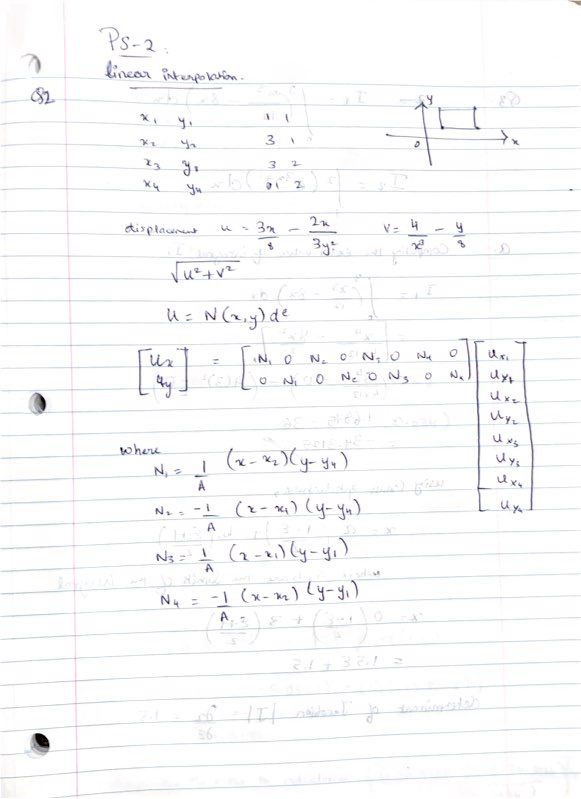 PS-2 :
linear interpolation.
Q2
x₁ y₁ 1 1
x₂ y₂ 3 1
x₃ y₃ 3 2
x₄ y₄ 1 2
y
0 x
displacement u = 3x/8 - 2x/3y² v = 4/x³ - y/8
√u²+v²
U = N(x,y) dᵉ
[Ux Uy] = [N₁ 0 N₂ 0 N₃ 0 N₄ 0
0 N₁ 0 N₂ 0 N₃ 0 N₄] [Ux₁
Uy₁
Ux₂
Uy₂
Ux₃
Uy₃
Ux₄
Uy₄]
where
N₁ = 1/A (x-x₂)(y-y₄)
N₂ = -1/A (x-x₁)(y-y₄)
N₃ = 1/A (x-x₁)(y-y₁)
N₄ = -1/A (x-x₂)(y-y₁)